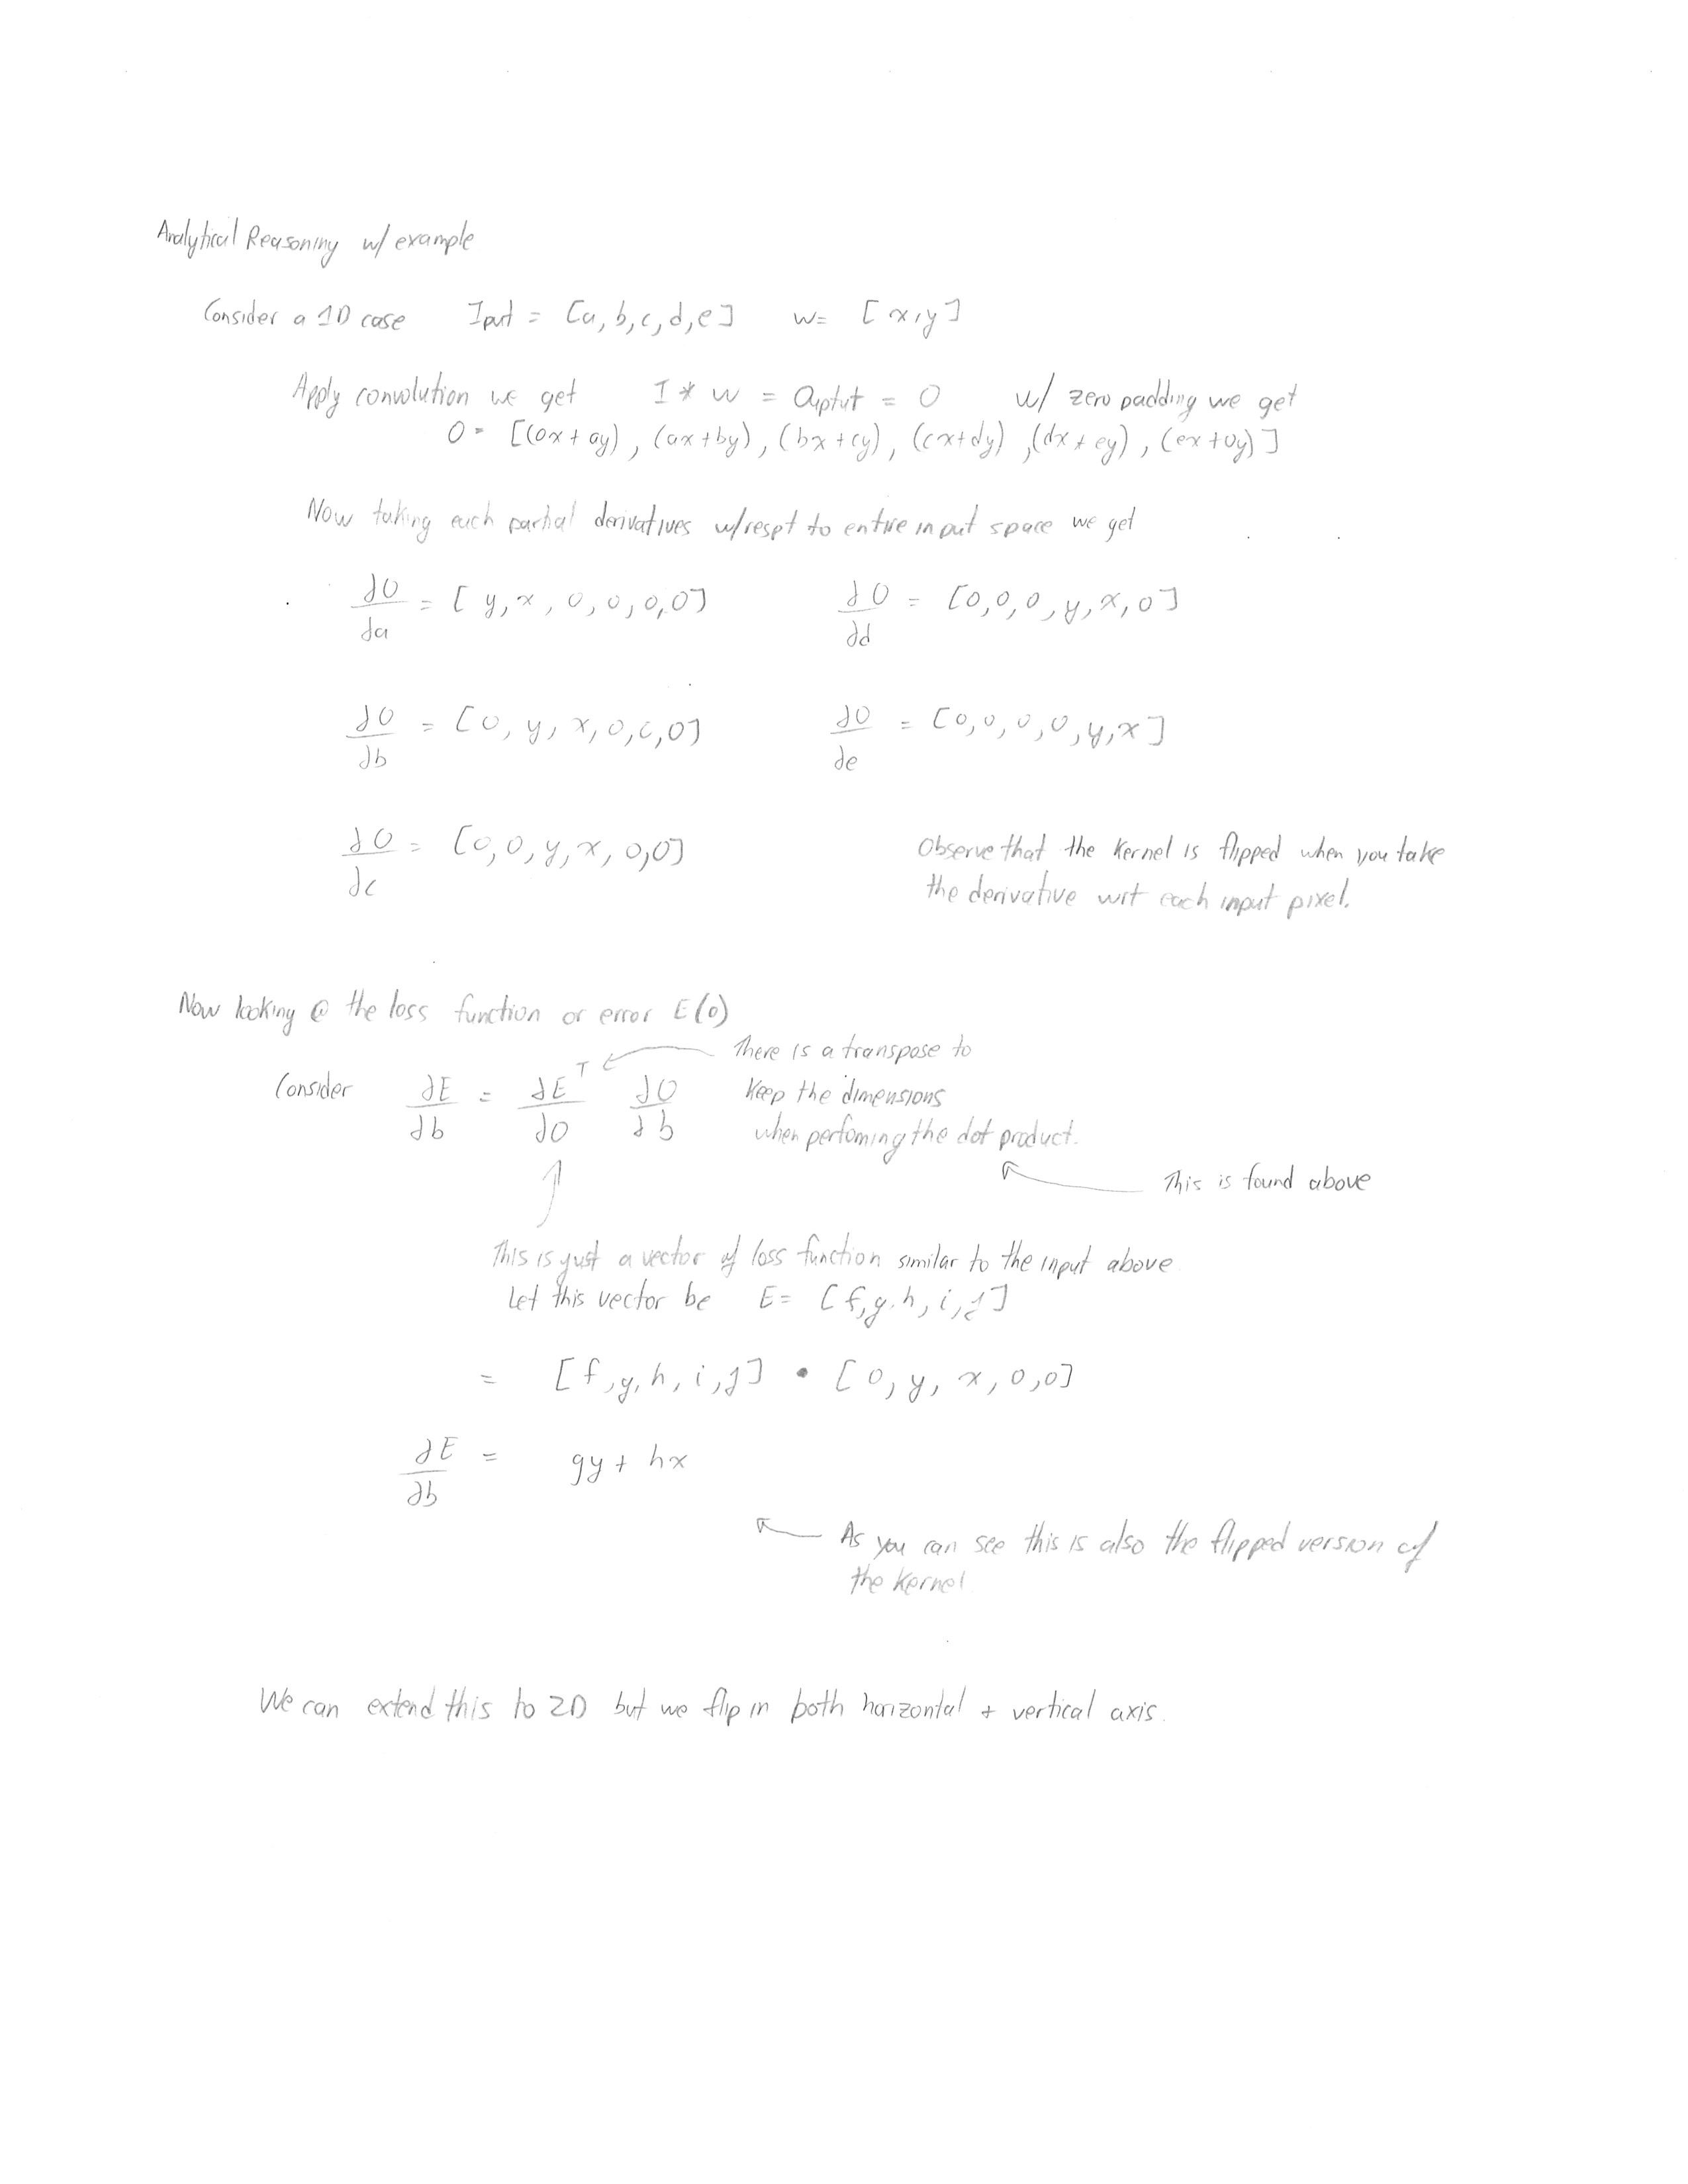 Analytical Reasoning w/ example
Consider a 1D case Iput = [a, b, c, d, e] w= [x,y]
Apply convolution we get I * w = Output = O w/ zero padding we get
O = [(0x + ay), (ax + by), (bx + cy), (cx + dy), (dx + ey), (ex + 0y)]
Now taking each partial derivatives w/respt to entire input space we get
∂O/∂a = [y, x, 0, 0, 0, 0] ∂O/∂d = [0, 0, 0, y, x, 0]
∂O/∂b = [0, y, x, 0, 0, 0] ∂O/∂e = [0, 0, 0, 0, y, x]
∂O/∂c = [0, 0, y, x, 0, 0]
Observe that the kernel is flipped when you take
the derivative wrt each input pixel.
Now looking @ the loss function or error E(o)
Consider ∂E/∂b = ∂E/∂O^T ∂O/∂b
There is a transpose to
keep the dimensions
when perfoming the dot product.
This is found above
This is just a vector of loss function similar to the input above
Let this vector be E= [f, g, h, i, j]
= [f, g, h, i, j] • [0, y, x, 0, 0]
∂E/∂b = gy + hx
As you can see this is also the flipped version of
the kernel
We can extend this to 2D but we flip in both horizontal + vertical axis.